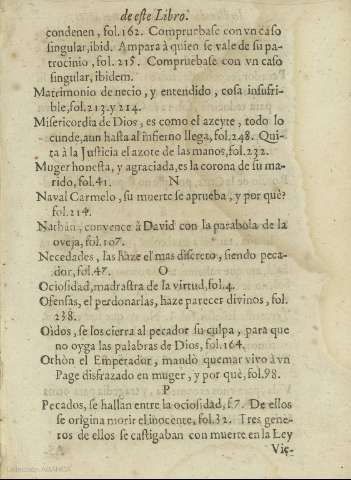 de este Libro.
condenen, fol. 162. Compruebase con vn caso
singular, ibid. Ampara à quien se vale de su pa-
trocinio, fol. 215. Compruebase con vn caso
singular, ibidem.
Matrimonio de necio, y entendido, cosa insufri-
ble, fol. 213. y 214.
Misericordia de Dios, es como el azeyte, todo lo
cunde, aun hasta al infierno llega, fol. 248. Qui-
ta à la Justicia el azote de las manos, fol. 232.
Muger honesta, y agraciada, es la corona de su ma-
rido, fol. 41. N
Naval Carmelo, su muerte se aprueba, y por què?
fol. 214.
Nathàn, convence à David con la parabola de la
oveja, fol. 107.
Necedades, las haze el mas discreto, siendo peca-
dor, fol. 47. O
Ociosidad, madrastra de la virtud, fol. 4.
Ofensas, el perdonarlas, haze parecer divinos, fol.
238.
Oìdos, se los cierra al pecador su culpa, para que
no oyga las palabras de Dios, fol. 164.
Othòn el Emperador, mandò quemar vivo à vn
Page disfrazado en muger, y por què, fol. 98.
P
Pecados, se hallan entre la ociosidad, f. 7. De ellos
se origina morir el inocente, fol. 32. Tres gene-
ros de ellos se castigaban con muerte en la Ley
Vie-